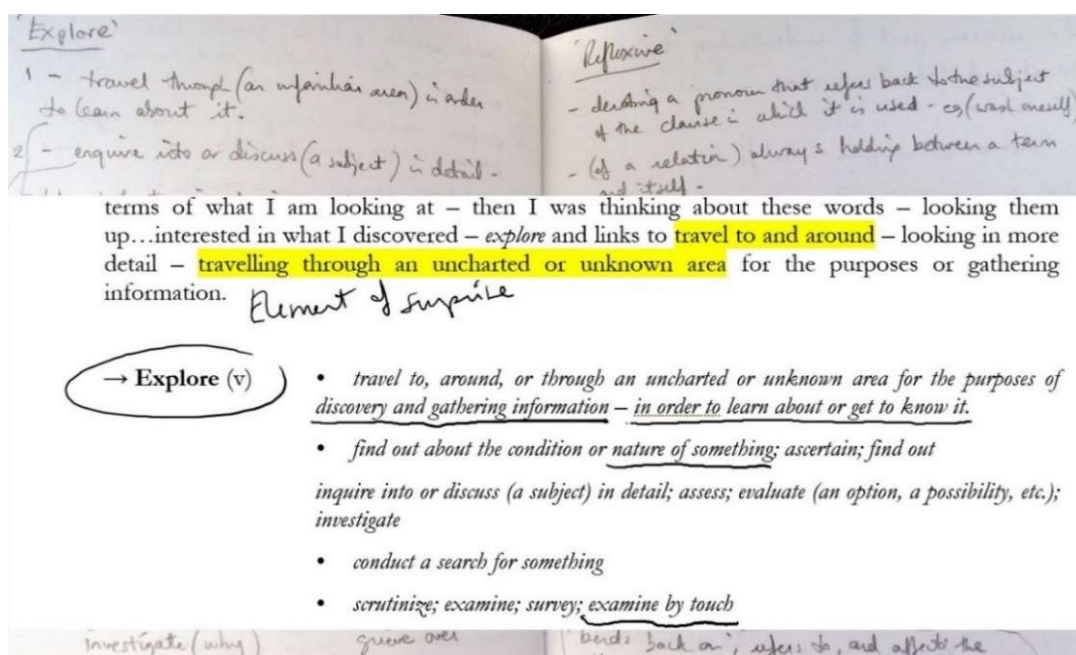 'Explore'
1 - travel through (an unfamiliar area) in order
to learn about it.
2 - enquire into or discuss (a subject) in detail -
'Reflexive'
- denoting a pronoun that refers back to the subject
of the clause in which it is used - eg (wash oneself)
- (of a relation) always holding between a term
and itself -
terms of what I am looking at – then I was thinking about these words – looking them
up…interested in what I discovered – explore and links to travel to and around – looking in more
detail – travelling through an uncharted or unknown area for the purposes or gathering
information. Element of surprise
→ Explore (v)
• travel to, around, or through an uncharted or unknown area for the purposes of
discovery and gathering information – in order to learn about or get to know it.
• find out about the condition or nature of something; ascertain; find out
inquire into or discuss (a subject) in detail; assess; evaluate (an option, a possibility, etc.);
investigate
• conduct a search for something
• scrutinize; examine; survey; examine by touch
investigate (why) grieve over
'bends back on', refers to, and affects the